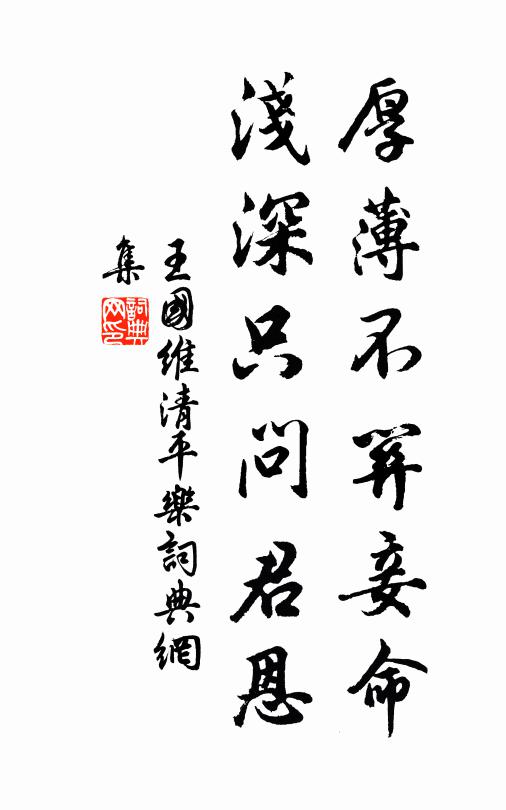 厚薄不關妾命
淺深只問君恩
王國維清平樂詞典網
集
詞典
网印